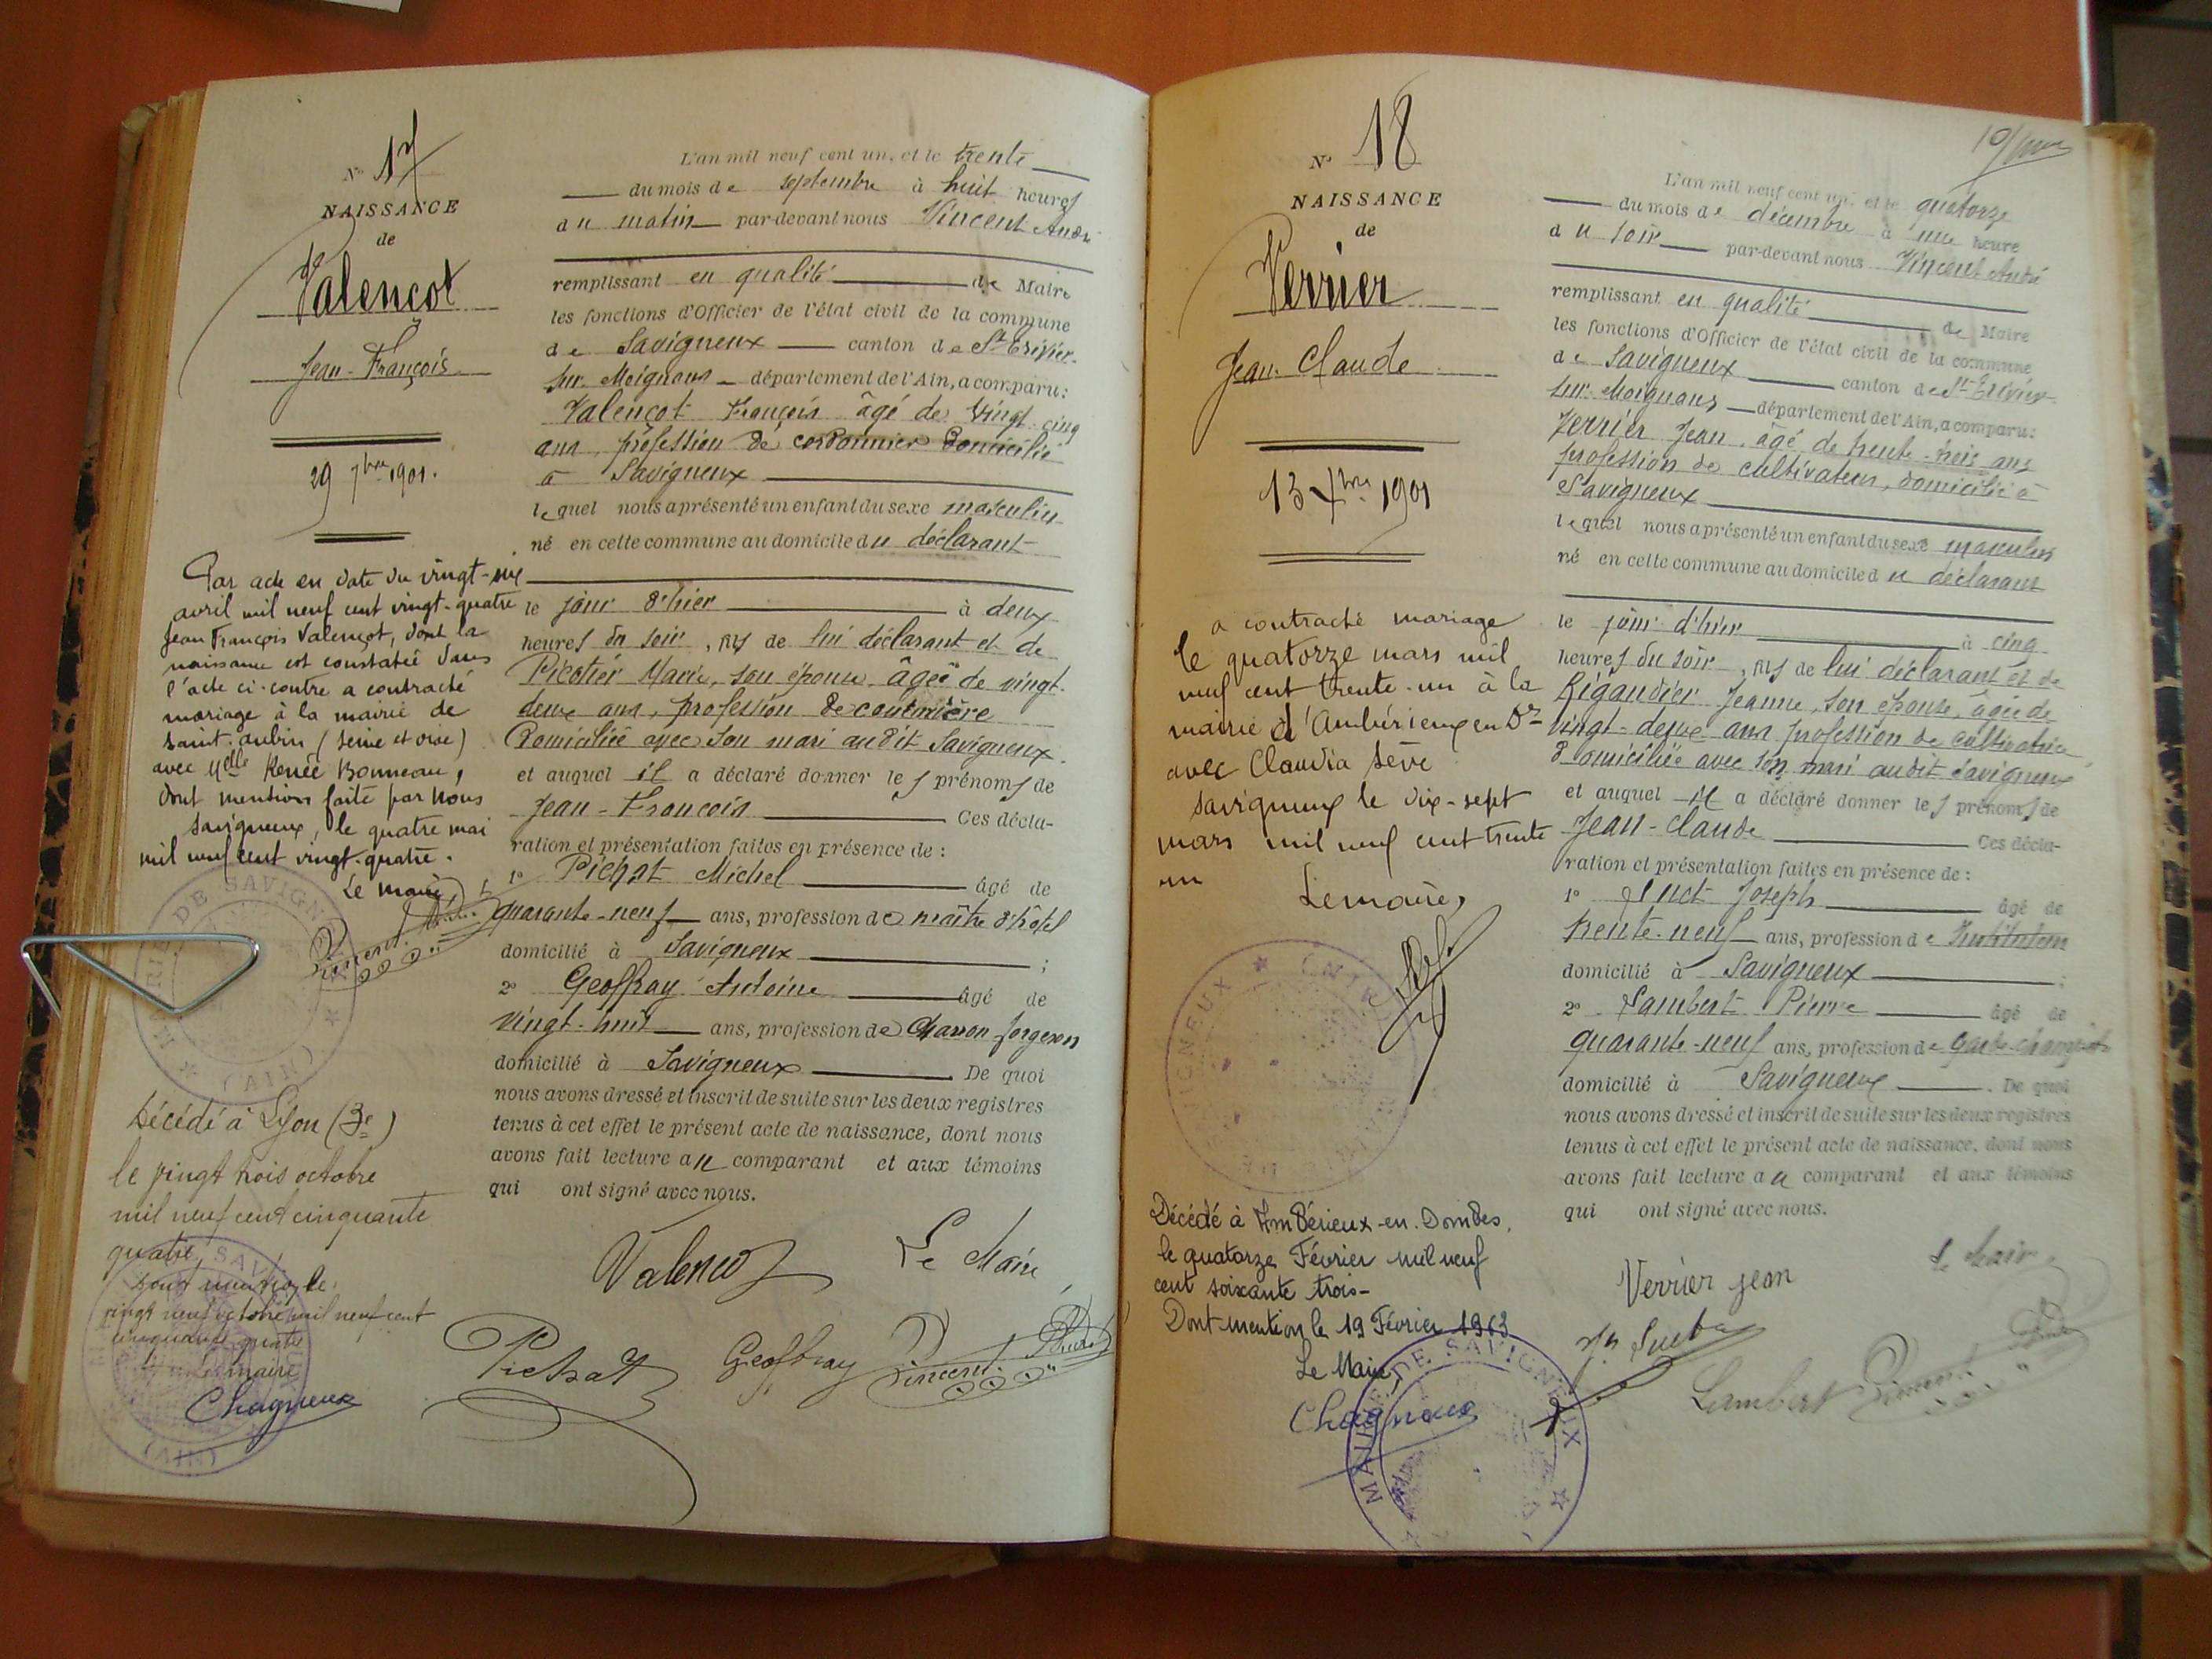 N° 17
NAISSANCE
de
Valençot
Jean-François
29 7bre 1901.
Par acte en date du vingt-six
avril mil neuf cent vingt-quatre
Jean François Valençot, dont la
naissance est constatée dans
l'acte ci-contre a contracté
mariage à la mairie de
Saint-Aubin (Seine et Oise)
avec Melle Renée Bonneau,
dont mention faite par nous
Savigneux, le quatre mai
mil neuf cent vingt-quatre.
Le maire,
Vincent André
MAIRIE DE SAVIGNEUX
(AIN)
Décédé à Lyon (3e)
le vingt trois octobre
mil neuf cent cinquante
quatre
Dont mention le
vingt neuf octobre mil neuf cent
cinquante quatre
Le maire
Chagneux
(AIN)
L'an mil neuf cent un, et le trente
du mois de septembre à huit heures
du matin par-devant nous Vincent André
remplissant en qualité de Maire
les fonctions d'Officier de l'état civil de la commune
de Savigneux canton de St Trivier-
sur-Moignans département de l'Ain, a comparu:
Valençot François âgé de vingt cinq
ans, profession de cordonnier domicilié
à Savigneux
lequel nous a présenté un enfant du sexe masculin
né en cette commune au domicile du déclarant
le jour d'hier à deux
heures du soir, fils de lui déclarant et de
Picotier Marie, son épouse, âgée de vingt-
deux ans, profession de couturière
domiciliée avec son mari audit Savigneux.
et auquel il a déclaré donner les prénoms de
Jean-François Ces décla-
ration et présentation faites en présence de:
1° Pichat Michel âgé de
quarante-neuf ans, profession de maître d'hôtel
domicilié à Savigneux ;
2° Geoffray Antoine âgé de
vingt-huit ans, profession de charron forgeron
domicilié à Savigneux De quoi
nous avons dressé et inscrit de suite sur les deux registres
tenus à cet effet le présent acte de naissance, dont nous
avons fait lecture au comparant et aux témoins
qui ont signé avec nous.
Valençot Le Maire
Pichat Geoffray Vincent André
N° 18
NAISSANCE
de
Verrier
Jean-Claude
13 Xbre 1901
a contracté mariage
le quatorze mars mil
neuf cent trente-un à la
mairie d'Ambérieux en Dbes
avec Claudia Sève
Savigneux le dix-sept
mars mil neuf cent trente
un
Le maire,
Décédé à Ambérieux-en-Dombes,
le quatorze Février mil neuf
cent soixante trois-
Dont mention le 19 Février 1963
Le Maire,
Chagneux
MAIRIE DE SAVIGNEUX
L'an mil neuf cent un, et le quatorze
du mois de décembre à une heure
du soir par-devant nous Vincent André
remplissant en qualité de Maire
les fonctions d'Officier de l'état civil de la commune
de Savigneux canton de St-Trivier-
sur-Moignans département de l'Ain, a comparu:
Verrier Jean, âgé de trente-trois ans
profession de cultivateur, domicilié à
Savigneux
lequel nous a présenté un enfant du sexe masculin
né en cette commune au domicile du déclarant
le jour d'hier à cinq
heures du soir, fils de lui déclarant et de
Rigaudier Jeanne, son épouse, âgée de
vingt-deux ans profession de cultivatrice
domiciliée avec son mari audit Savigneux
et auquel il a déclaré donner les prénoms de
Jean-Claude Ces décla-
ration et présentation faites en présence de:
1° Joseph âgé de
trente-neuf ans, profession de Instituteur
domicilié à Savigneux ;
2° Lambert Pierre âgé de
quarante-neuf ans, profession de garde-champêtre
domicilié à Savigneux. De quoi
nous avons dressé et inscrit de suite sur les deux registres
tenus à cet effet le présent acte de naissance, dont nous
avons fait lecture au comparant et aux témoins
qui ont signé avec nous.
Le Maire
Verrier jean
Lambert Vincent André